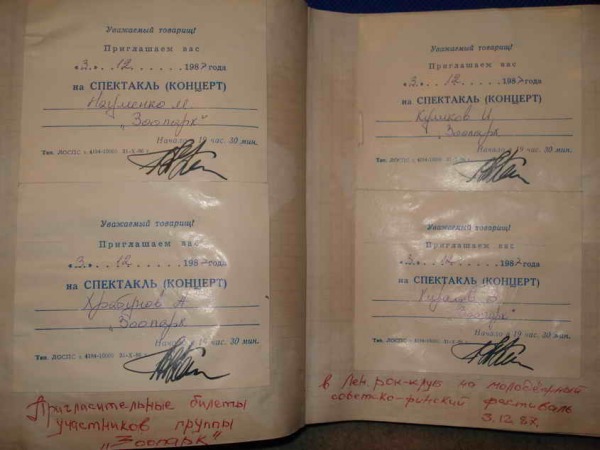 Уважаемый товарищ!
Приглашаем вас
«3» . . 12 . . . . . . 1987 года
на СПЕКТАКЛЬ (КОНЦЕРТ)
Науменко М.
"Зоопарк"
Начало в 19 час. 30 мин.
Тип. ЛОСПС
Уважаемый товарищ!
Приглашаем вас
«3» . . 12 . . . . . . 1987 года
на СПЕКТАКЛЬ (КОНЦЕРТ)
Храбунов А.
"Зоопарк
Начало в 19 час. 30 мин.
Тип. ЛОСПС
Пригласительные билеты
участников группы
"Зоопарк"
Уважаемый товарищ!
Приглашаем вас
«3» . . 12 . . . . . . 1987 года
на СПЕКТАКЛЬ (КОНЦЕРТ)
Куликов И.
"Зоопарк
Начало в 19 час. 30 мин.
Тип. ЛОСПС
Уважаемый товарищ!
Приглашаем вас
«3» . . 12 . . . . . . 1987 года
на СПЕКТАКЛЬ (КОНЦЕРТ)
"Зоопарк"
Начало в 19 час. 30 мин.
Тип. ЛОСПС
в Лен. рок-клуб на молодёжный
советско-финский фестиваль
3.12.87г.